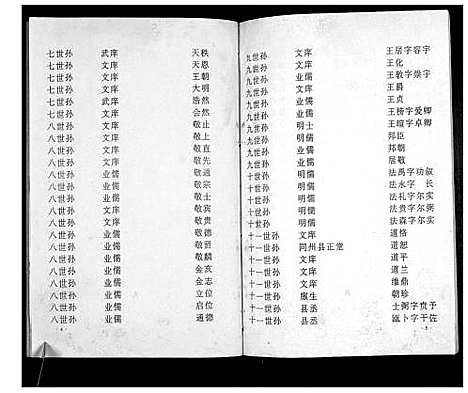 七世孙 武庠 天秩
七世孙 文庠 天恩
七世孙 文庠 王朝
七世孙 文庠 大明
七世孙 武庠 浩然
七世孙 文庠 会然
八世孙 文庠 敬止
八世孙 文庠 敬上
八世孙 文庠 敬直
八世孙 文庠 敬先
八世孙 业儒 敬通
八世孙 业儒 敬宗
八世孙 业儒 敬士
八世孙 文庠 敬宾
八世孙 文庠 敬贵
八世孙 业儒 敬德
八世孙 业儒 敬贤
八世孙 业儒 敬麟
八世孙 业儒 金亥
八世孙 业儒 金志
八世孙 业儒 立位
八世孙 业儒 启位
八世孙 业儒 通德
九世孙 文庠 王居字容宇
九世孙 业儒 王化
九世孙 文庠 王敦字崇宇
九世孙 文庠 王爵
九世孙 业儒 王贞
九世孙 业儒 王榜字爱卿
九世孙 明士 王瑄字卓卿
九世孙 文庠 邦臣
九世孙 业儒 邦朝
九世孙 文庠 居敬
十世孙 明儒 法禹字功叙
十世孙 明儒 法永字 长
十世孙 明儒 法礼字尔实
十世孙 明儒 法贵字尔弼
十世孙 明儒 法森字尔实
十一世孙 文庠 道恪
十一世孙 同州县正堂 道恕
十一世孙 文庠 道平
十一世孙 文庠 道兰
十一世孙 文庠 维鼎
十一世孙 廪生 朝珍
十一世孙 县丞 士弼字贲予
十一世孙 县丞 瓯卜字干佐